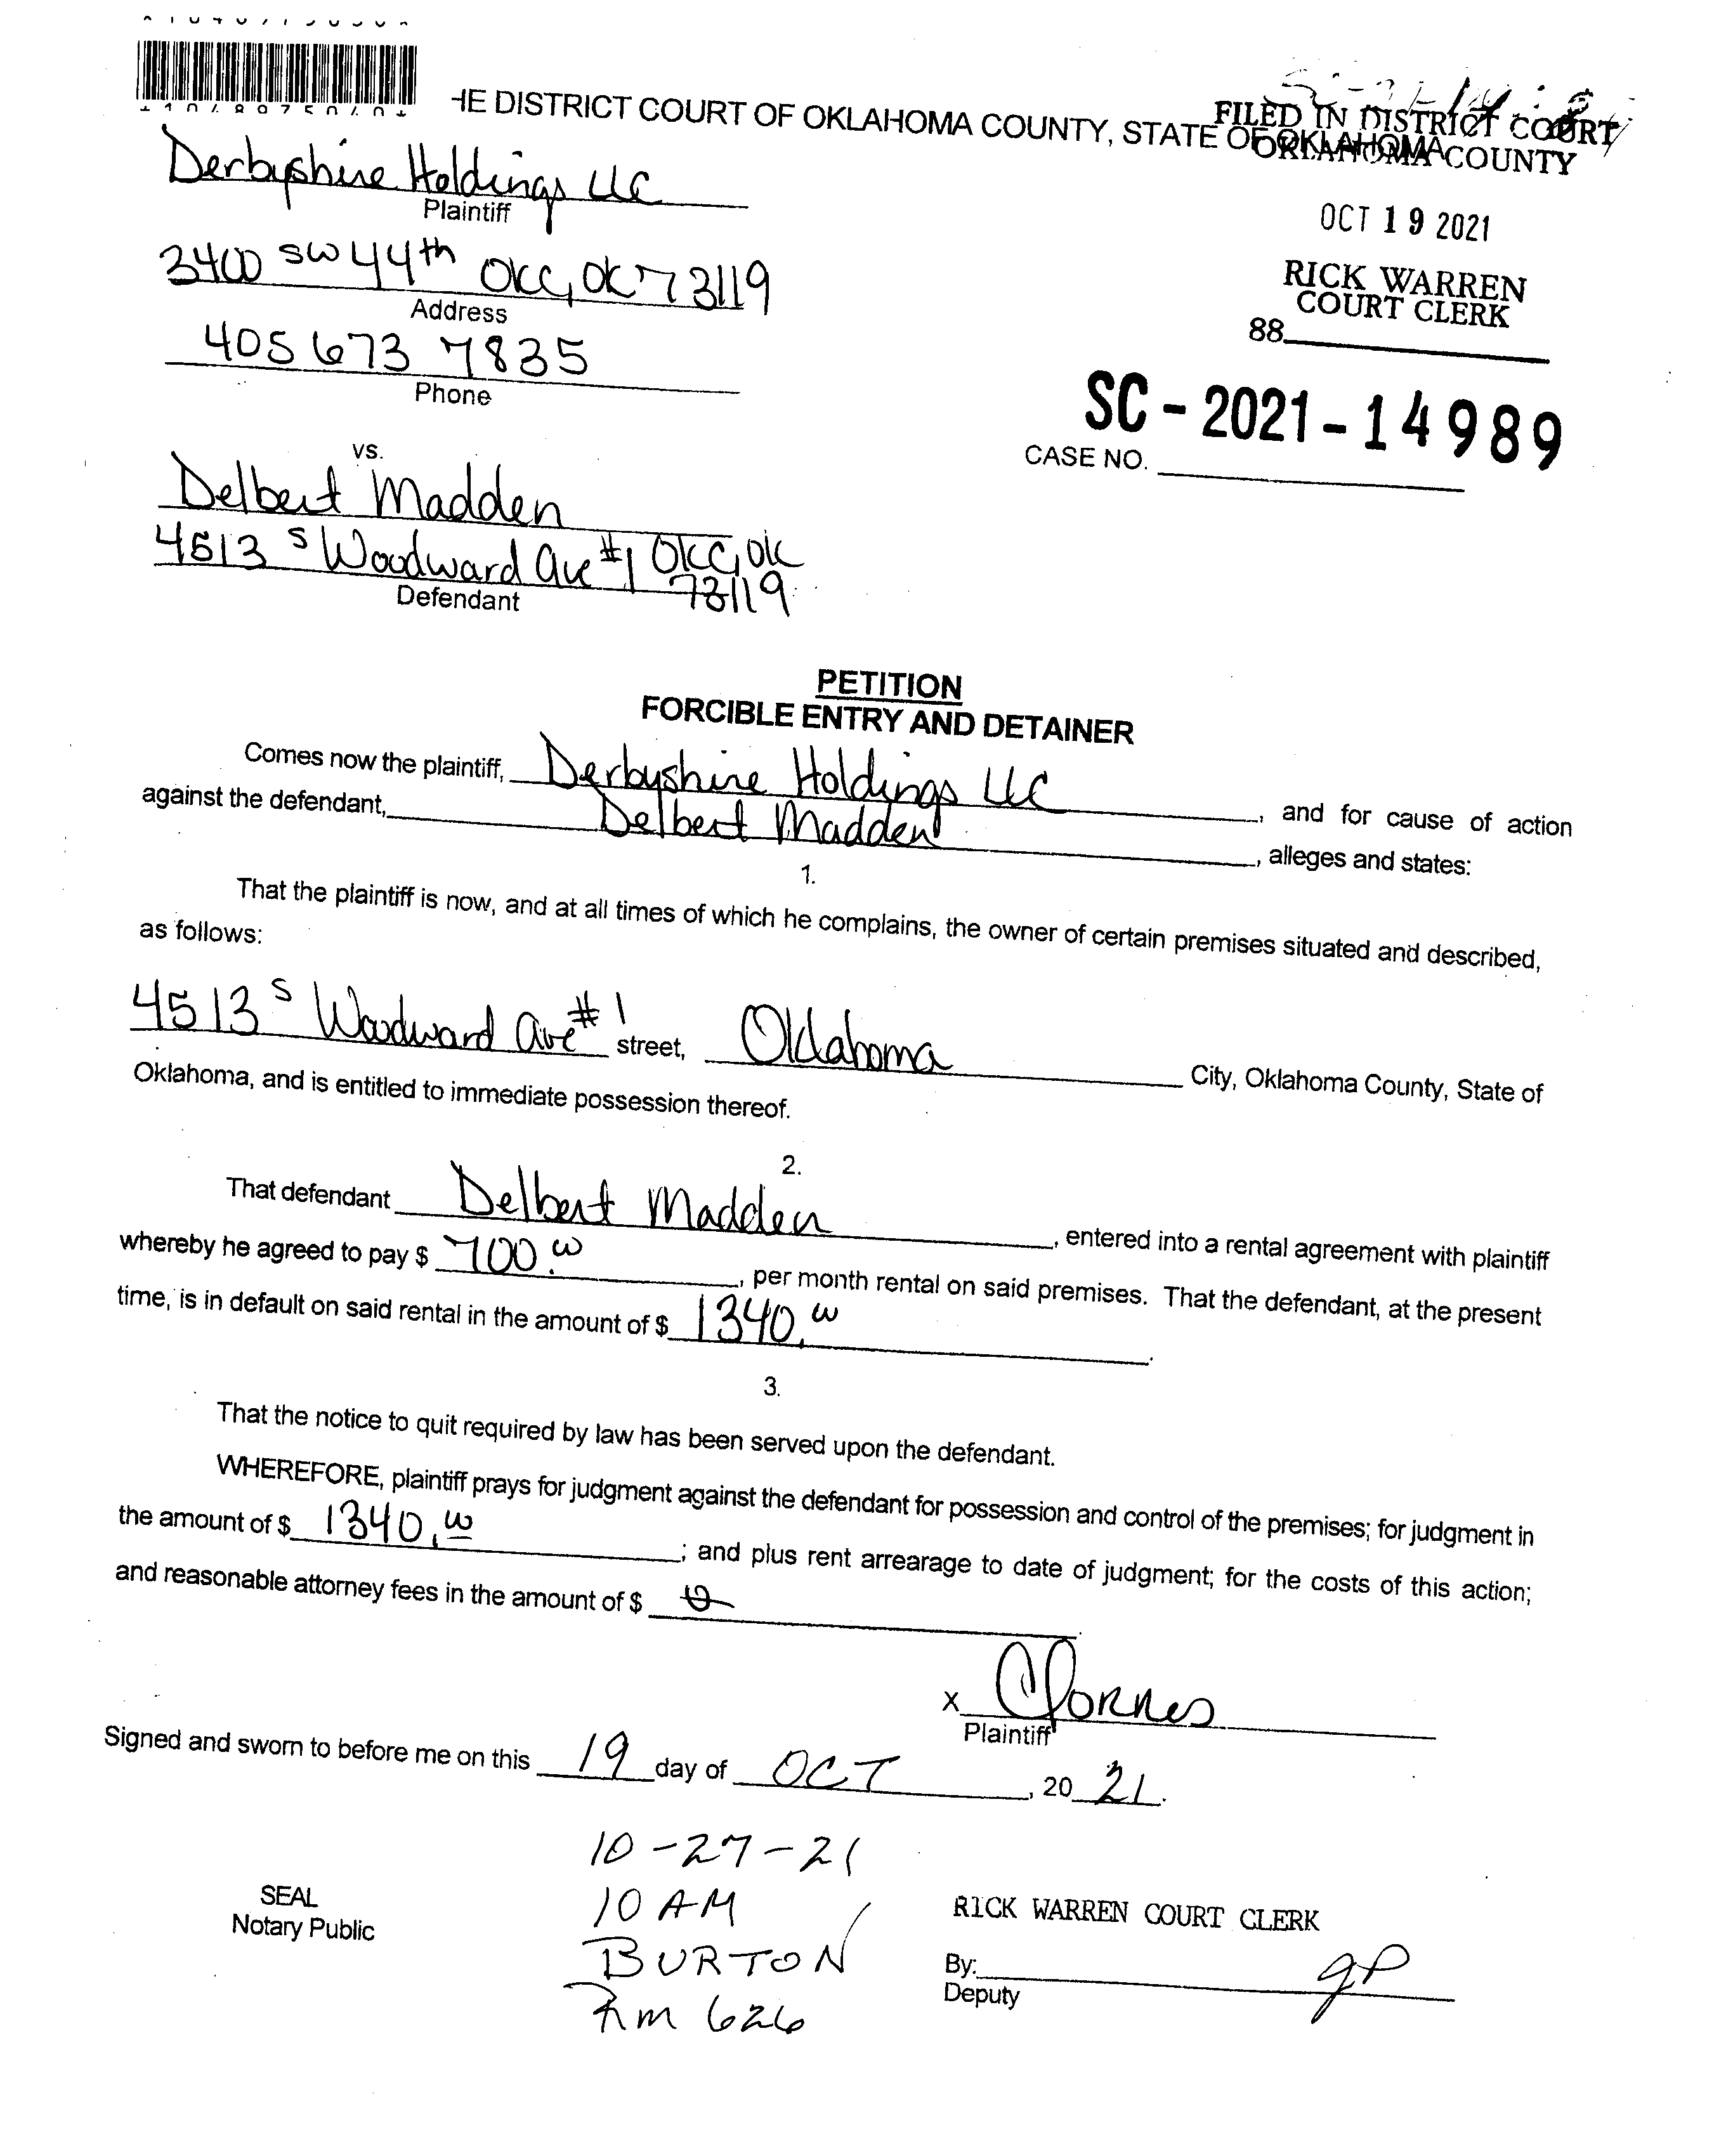 HE DISTRICT COURT OF OKLAHOMA COUNTY, STATE OF OKLAHOMA
FILED IN DISTRICT COURT
OKLAHOMA COUNTY
OCT 19 2021
RICK WARREN
COURT CLERK
88
SC-2021-14989
CASE NO.
Derbyshire Holdings LLC
Plaintiff
3400 SW 44th OKC, OK 73119
Address
405 673 7835
Phone
vs.
Delbert Madden
4513 S Woodward Ave #1 OKC, OK
73119
Defendant
PETITION
FORCIBLE ENTRY AND DETAINER
Comes now the plaintiff, Derbyshire Holdings LLC, and for cause of action
against the defendant, Delbert Madden, alleges and states:
1.
That the plaintiff is now, and at all times of which he complains, the owner of certain premises situated and described,
as follows:
4513 S Woodward Ave #1 street, Oklahoma City, Oklahoma County, State of
Oklahoma, and is entitled to immediate possession thereof.
2.
That defendant Delbert Madden, entered into a rental agreement with plaintiff
whereby he agreed to pay $ 700.00, per month rental on said premises. That the defendant, at the present
time, is in default on said rental in the amount of $ 1340.00.
3.
That the notice to quit required by law has been served upon the defendant.
WHEREFORE, plaintiff prays for judgment against the defendant for possession and control of the premises; for judgment in
the amount of $ 1340.00; and plus rent arrearage to date of judgment; for the costs of this action;
and reasonable attorney fees in the amount of $ 0.
X CFornes
Plaintiff
Signed and sworn to before me on this 19 day of OCT, 20 21.
10-27-21
10 AM
BURTON
Rm 626
SEAL
Notary Public
RICK WARREN COURT CLERK
By: gP
Deputy